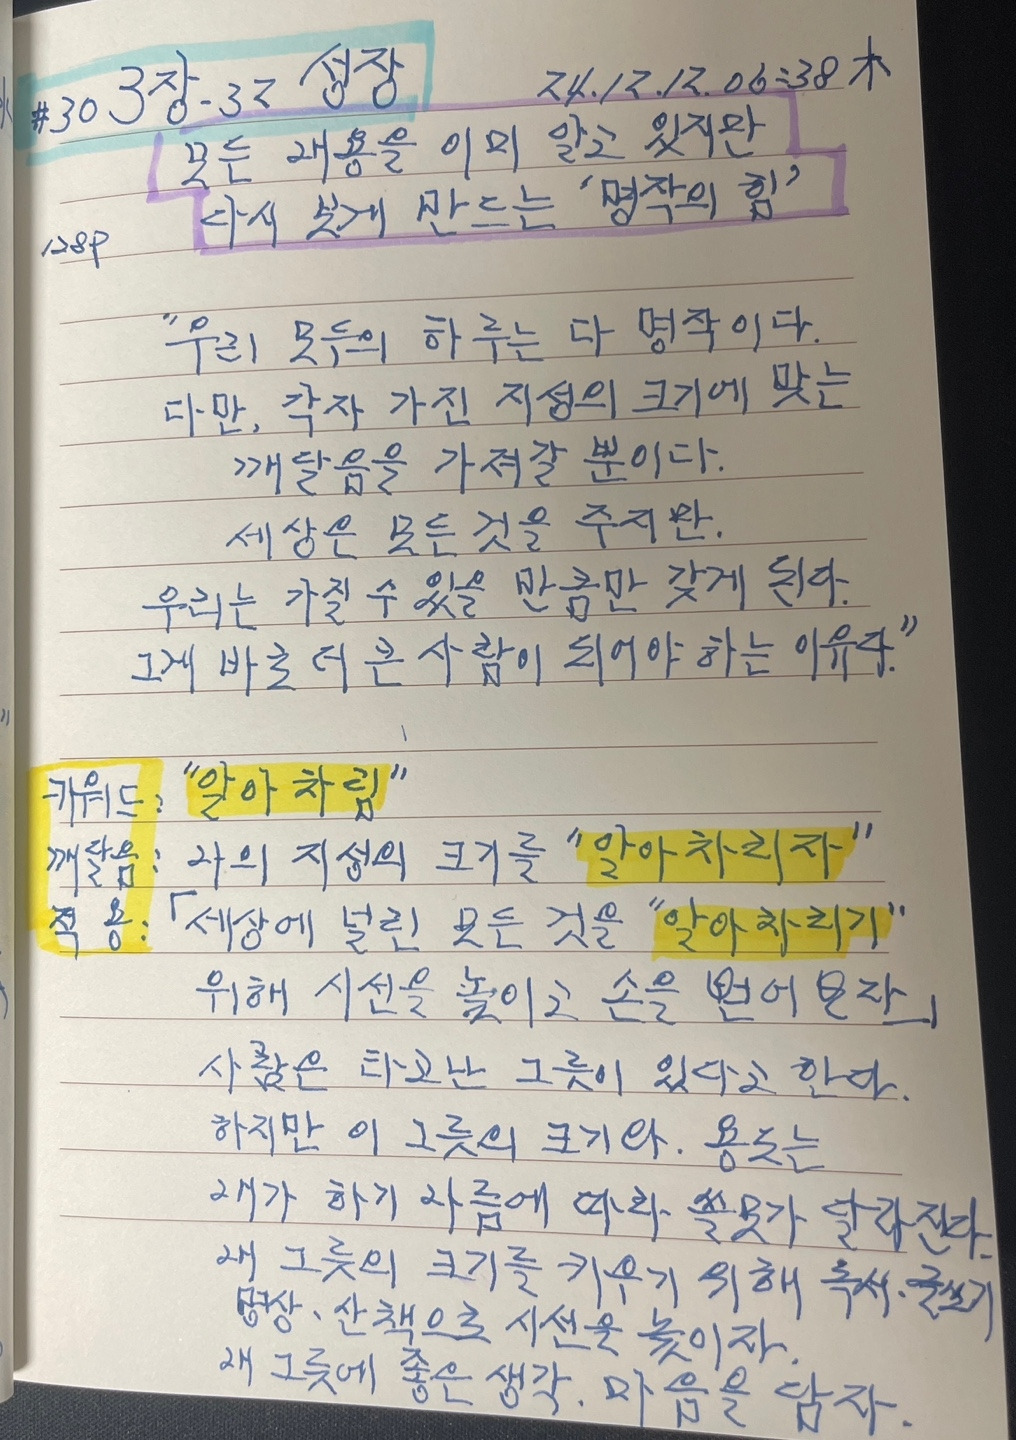 #30 3장-32 성장
24.12.12. 06:38 木
모든 내용을 이미 알고 있지만
다시 찾게 만드는 '명작의 힘'
128p
"우리 모두의 하루는 다 명작이다.
다만, 각자 가진 지성의 크기에 맞는
깨달음을 가져갈 뿐이다.
세상은 모든 것을 주지만.
우리는 가질 수 있을 만큼만 갖게 된다.
그게 바로 더 큰 사람이 되어야 하는 이유다."
키워드: "알아차림"
깨달음: 나의 지성의 크기를 "알아차리자"
적용: 「세상에 널린 모든 것을 "알아차리기"
위해 시선을 높이고 손을 뻗어 보자」
사람은 타고난 그릇이 있다고 한다.
하지만 이 그릇의 크기와. 용도는
내가 하기 나름에 따라 쓸모가 달라진다.
내 그릇의 크기를 키우기 위해 독서. 글쓰기
명상. 산책으로 시선을 높이자.
내 그릇에 좋은 생각. 마음을 담자.